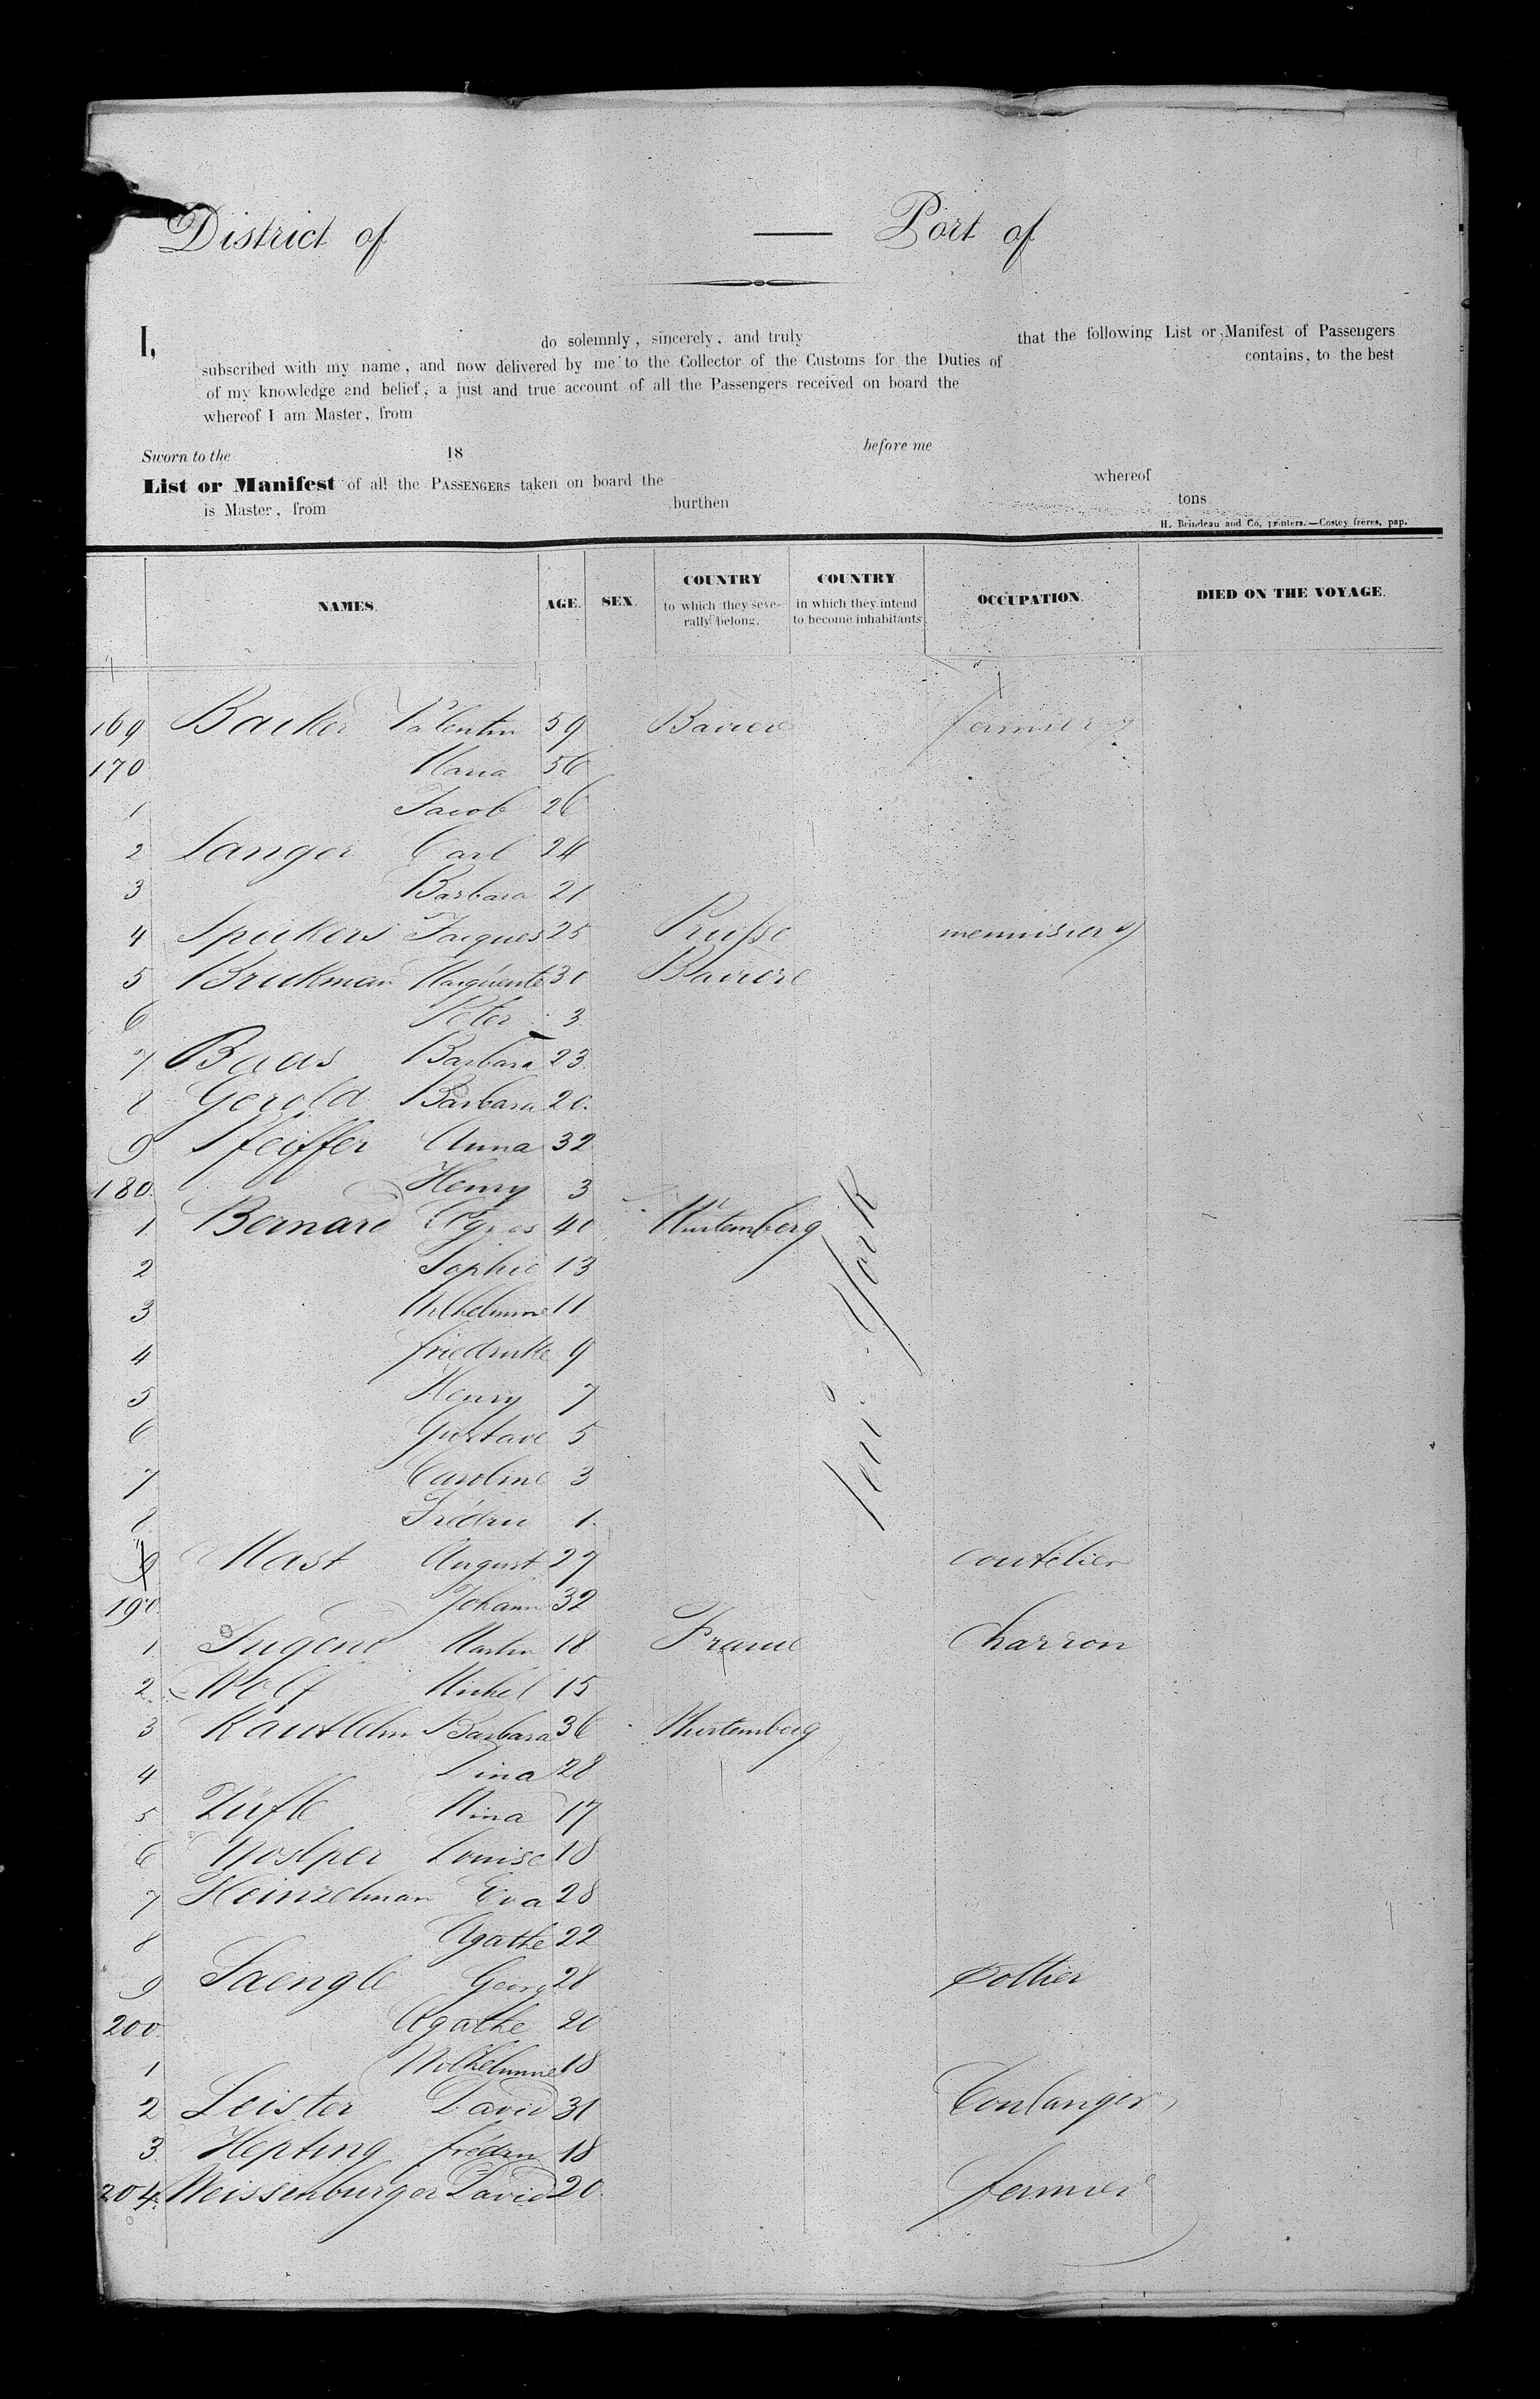 District of — Port of
I, do solemnly, sincerely, and truly that the following List or Manifest of Passengers
subscribed with my name, and now delivered by me to the Collector of the Customs for the Duties of contains, to the best
of my knowledge and belief, a just and true account of all the Passengers received on board the
whereof I am Master, from
Sworn to the 18 before me
List or Manifest of all the PASSENGERS taken on board the whereof
is Master, from burthen tons
H. Brindeau and Co, printers.—Costey frères, pap.
NAMES. AGE. SEX. COUNTRY to which they seve-rally belong. COUNTRY in which they intend to become inhabitants OCCUPATION. DIED ON THE VOYAGE.
169 Backer Valentin 59 Baviere fermier
170 Maria 56
1 Jacob 26
2 Langer Carl 24
3 Barbara 21
4 Speikers Jacques 25 Prusse mennisier
5 Brukman Marguerite 30 Baviere
6 Peter 3
7 Baas Barbara 23
8 Gerold Barbara 20.
9 Pfeiffer Anna 32
180. Henry 3
1 Bernard Agnes 40 Wurtemberg
2 Sophie 13
3 Wilhelmine 11
4 friedrike 9
5 Henry 7
6 Gustave 5
7 Caroline 3
8 Frédric 1.
New-York
9 Mast August 27 coutelier
190 Johann 32
1. Eugene Martin 18 France Charron
2. Wolf Michel 15
3 Kautlehn Barbara 36 Wurtemberg
4 Tina 28
5 Züfle Mina 17
6 Louise 18
7 Heinzelman Eva 28
8 Agathe 22
9 Saengle Georg 28 Sollier
200. Agathe 20
1 Wilhelmine 18
2 Leister David 31 Boulanger
3. Hepting frédric 18
204. Weissenburger David 20. fermier